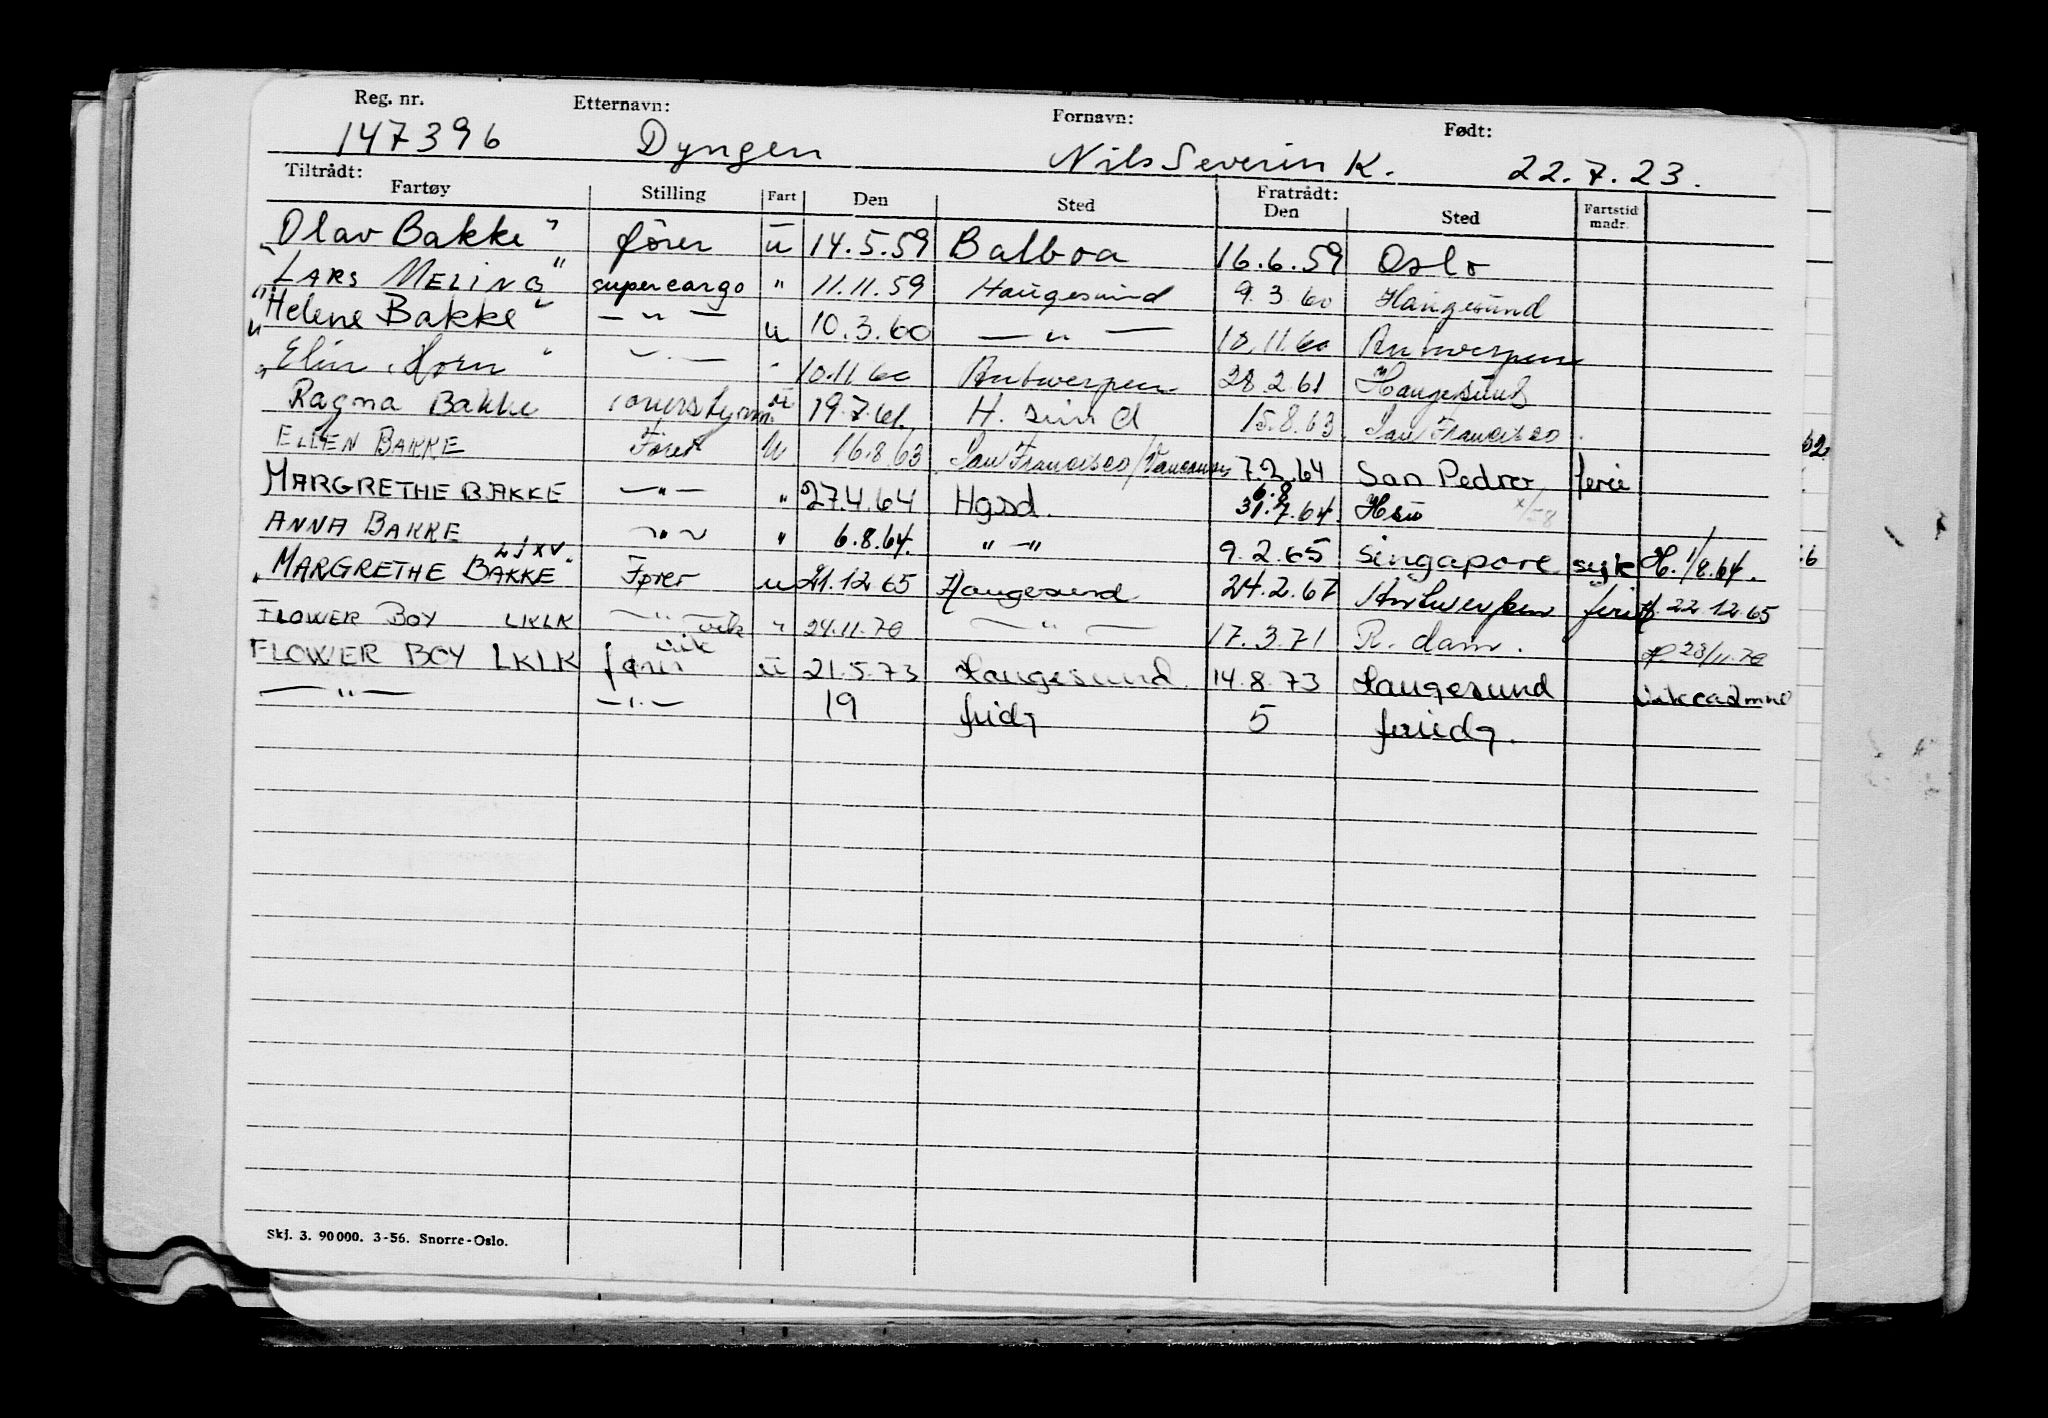 Reg. nr. Etternavn: Fornavn: Født:
147396 Dyngen Nils Severin K. 22.7.23.
Tiltrådt: Fratrådt:
Fartøy Stilling Fart Den Sted Den Sted Fartstid madr.
"Olav Bakke" fører u 14.5.59 Balboa 16.6.59 Oslo
"LARS MELING" supercargo " 11.11.59 Haugesund 9.3.60 Haugesund
"Helene Bakke" — " — u 10.3.60 — " — 10.11.60 Antwerpen
"Elin Horn" — " — 10.11 60 Antwerpen 28.2.61 Haugesund
Ragna Bakke u 19.7.61. H. sund 15.8.63 San Francisco
ELLEN BAKKE Fører u 16.8.63 San Francisco/Vancouver 7.2.64 San Pedro ferie
MARGRETHE BAKKE — " — " 27.4.64 Hgsd. 31.7.64. Hsu
ANNA BAKKE ~ " ~ " 6.8.64. " — " 9.2.65 Singapore syk H. 1/8.64.
"MARGRETHE BAKKE" LJXV. Fører u 21.12.65 Haugesund 24.2.67 Antwerpen ferie 22.12.65
FLOWER BOY LKLK — " — vik " 24.11.70 — " — 17.3.71 R.dam. 23/11.70
FLOWER BOY LKLK fører vik u 21.5.73 Haugesund 14.8.73 Haugesund
— " — — " — 19 fridg 5 feriedg.
Skj. 3. 90000. 3-56. Snorre-Oslo.